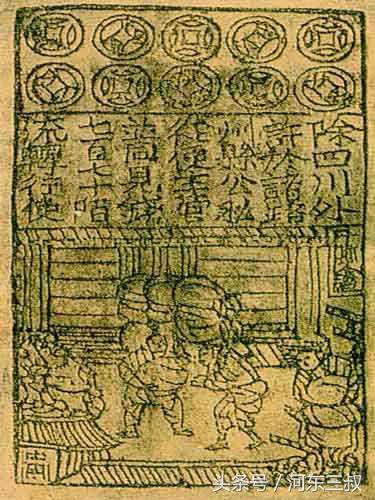 除四川外
許於諸路
州縣公私
從便主管
並同見錢
七百七十陌
流轉行使
头条号 / 河东三叔